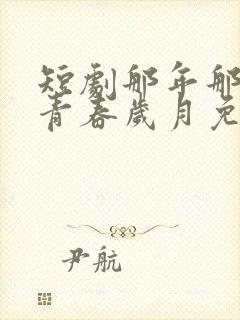 短劇那年那
青春歲月免
尹航